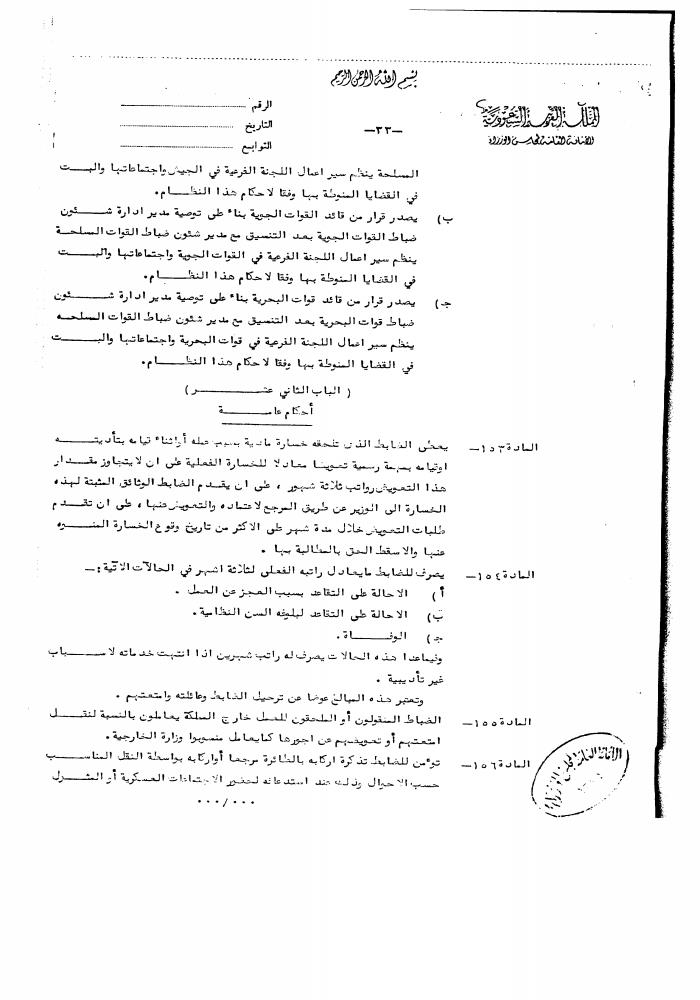 بسم الله الرحمن الرحيم
المملكة العربية السعودية
الأمانة العامة لمجلس الوزراء
الرقم
التاريخ
التوابع
—٣٣—
المسلحة ينظم سير اعمال اللجنة الفرعية في الجيش واجتماعاتها والبت
في القضايا المنوطة بها وفقا لاحكام هذا النظام .
ب) يصدر قرار من قائد القوات الجوية بناء على توصية مدير ادارة شئون
ضباط القوات الجوية بعد التنسيق مع مدير شئون ضباط القوات المسلحة
ينظم سير اعمال اللجنة الفرعية في القوات الجوية واجتماعاتها والبت
في القضايا المنوطة بها وفقا لاحكام هذا النظام .
جـ) يصدر قرار من قائد قوات البحرية بناء على توصية مدير ادارة شئون
ضباط قوات البحرية بعد التنسيق مع مدير شئون ضباط القوات المسلحه
ينظم سير اعمال اللجنة الفرعية في قوات البحرية واجتماعاتها والبت
في القضايا المنوطة بها وفقا لاحكام هذا النظام .
( الباب الثاني عشر )
أحكام عامة
المادة ١٥٣— يعطى الضابط الذى تلحقه خسارة مادية بسبب عمله أو اثناء قيامه بتأديته
اوقيامه بمهمة رسمية تعويضا معادلا للخسارة الفعلية على ان لايتجاوز مقدار
هذا التعويض رواتب ثلاثة شهور ، على ان يقدم الضابط الوثائق المثبتة لهذه
الخسارة الى الوزير عن طريق المرجع لاعتماده والتعويض عنها ، على ان تقدم
طلبات التعويض خلال مدة شهر على الاكثر من تاريخ وقوع الخسارة المنوه
عنها والا سقط الحق بالمطالبة بها .
المادة ١٥٤— يصرف للضابط مايعادل راتبه الفعلى لثلاثة اشهر في الحالات الاتية :—
أ) الاحالة على التقاعد بسبب العجز عن العمل .
ب) الاحالة على التقاعد لبلوغه السن النظامية .
جـ) الوفاة .
وفيماعدا هذه الحالات يصرف له راتب شهرين اذا انتهت خدماته لاسباب
غير تأديبية .
وتعتبر هذه المبالغ عوضا عن ترحيل الضابط وعائلته وامتعتهم .
المادة ١٥٥— الضباط المنقولون أو الملحقون للعمل خارج المملكة يعاملون بالنسبة لنقل
امتعتهم أو تعويضهم عن اجورها كمايعامل منسوبوا وزارة الخارجية .
المادة ١٥٦— تؤمن للضابط تذكرة اركابه بالطائرة مرجعا أواركابه بواسطة النقل المناسب
حسب الاحوال وذلك عند استدعائه لحضور الاجتماعات العسكرية أو المثول
٠٠٠/٠٠٠